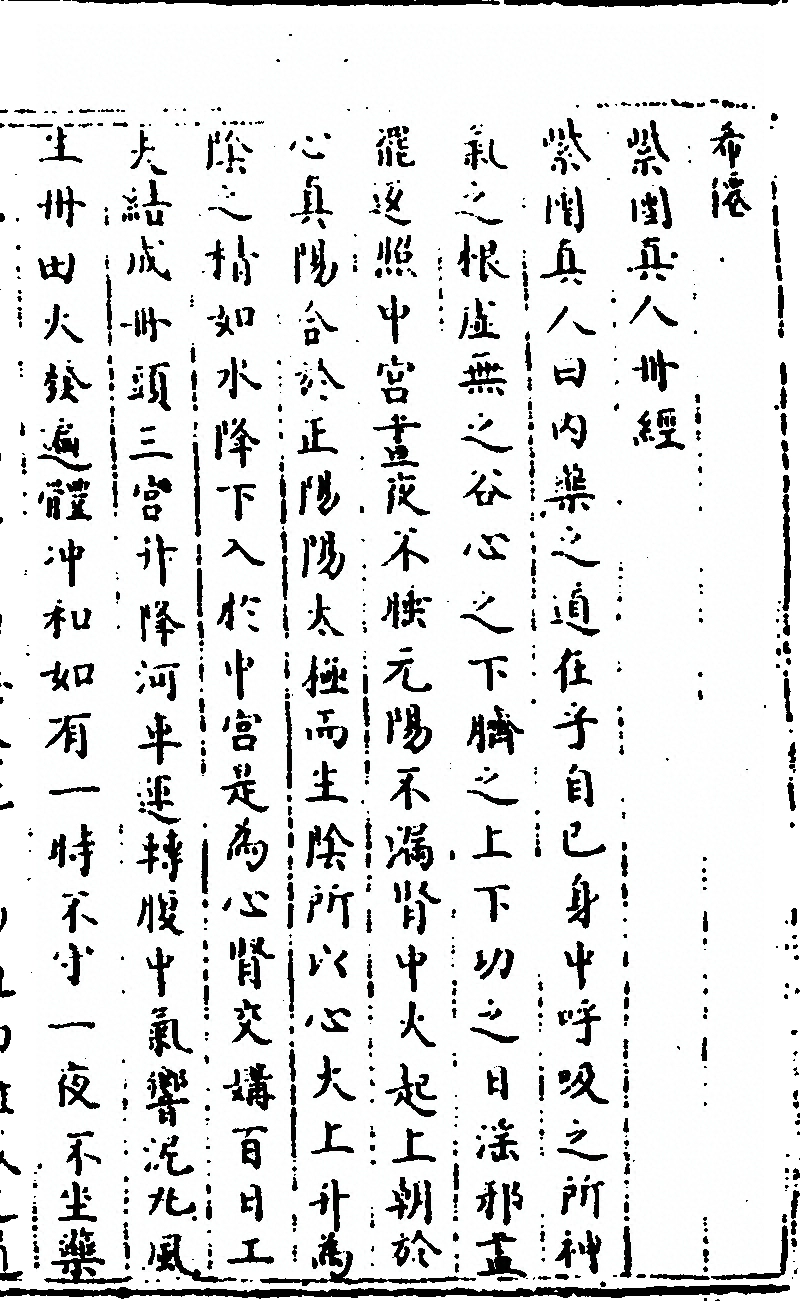 希僊
紫團真人丹經
紫團真人曰内藥之道在乎自已身中呼吸之所神
氣之根虛無之谷心之下臍之上下功之日滌邪盡
罷返照中宮晝夜不睡元陽不漏腎中火起上朝於
心真陽合於正陽陽太極而生陰所以心火上升為
陰之精如水降下入於中宮是為心腎交媾百日工
夫結成丹頭三宮升降河車運轉腹中氣響泥丸風
生丹田火發遍體沖和如有一時不守一夜不坐藥